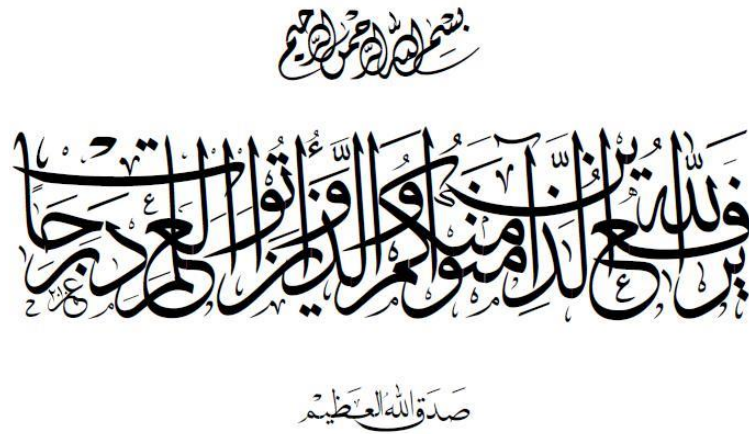 بسم الله الرحمن الرحيم
يَرْفَعِ اللَّهُ الَّذِينَ آمَنُوا مِنكُمْ وَالَّذِينَ أُوتُوا الْعِلْمَ دَرَجَاتٍ
صدق الله العظيم